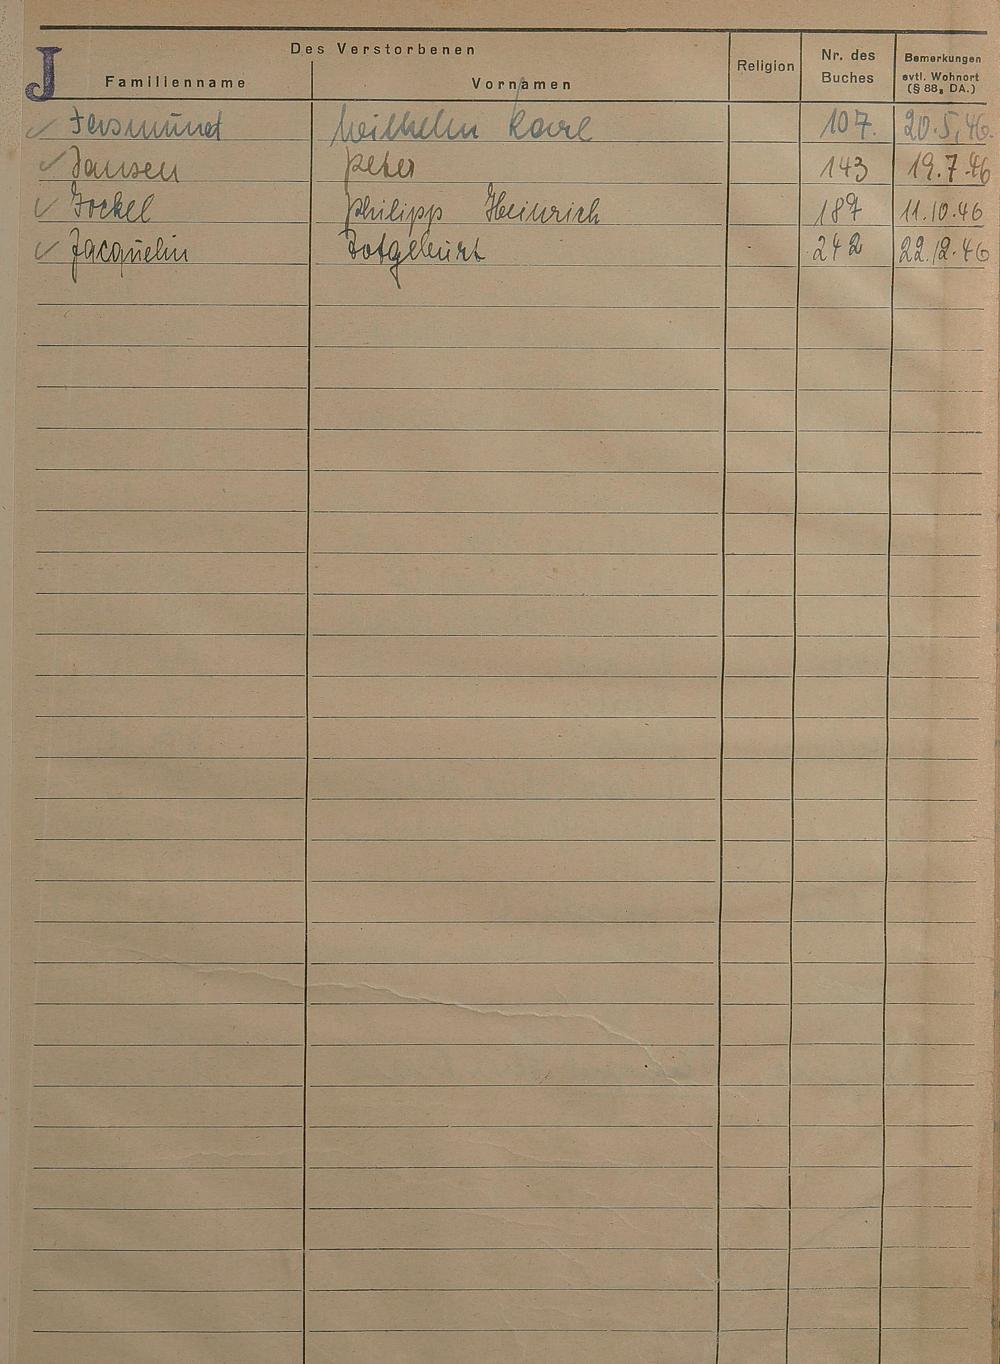 J
Des Verstorbenen
Familienname Vornamen Religion Nr. des Buches Bemerkungen evtl. Wohnort (§ 88, DA.)
✓ Wilhelm Karl 107. 20.5.46.
✓ Jansen Peter 143 19.7.46
✓ Jockel Philipp Heinrich 187 11.10.46
✓ Jacquelin Totgeburt 242 22.12.46